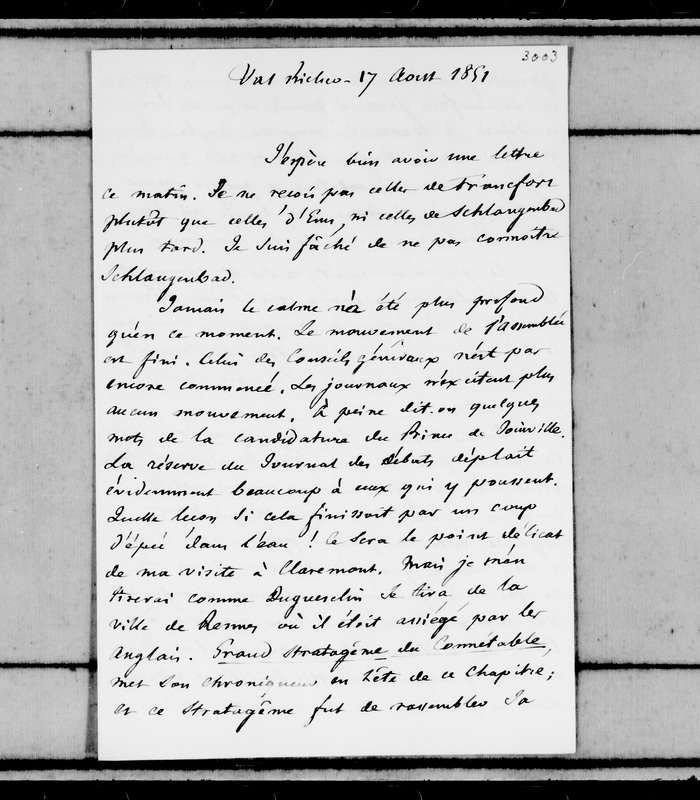 3003
Val Richer - 17 Aout 1851
J'espère bien avoir une lettre
ce matin. Je ne reçois pas celles de francfort
plutôt que celles d'Ems, ni celles de Schlangenbad
plus tard. Je suis fâché de ne pas connoitre
Schlangenbad.
Jamais le calme n'a été plus profond
qu'en ce moment. Le mouvement de l'assemblée
est fini. Celui des Conseils généraux n'est pas
encore commencé. Les journaux n'excitent plus
aucun mouvement. À peine dit-on quelques
mots de la candidature du Prince de Joinville.
La réserve du Journal des débats déplait
évidemment beaucoup à ceux qui y poussent.
Quelle leçon si cela finissoit par un coup
d'épée dans l'eau ! Ce sera le point délicat
de ma visite à Claremont. Mais je m'en
tirerai comme Duguesclin se tira de la
ville de Rennes où il étoit assiégé par les
Anglais. Grand stratagème du Connétable,
met son chroniqueur en tête de ce chapitre;
et ce stratagème fut de rassembler sa